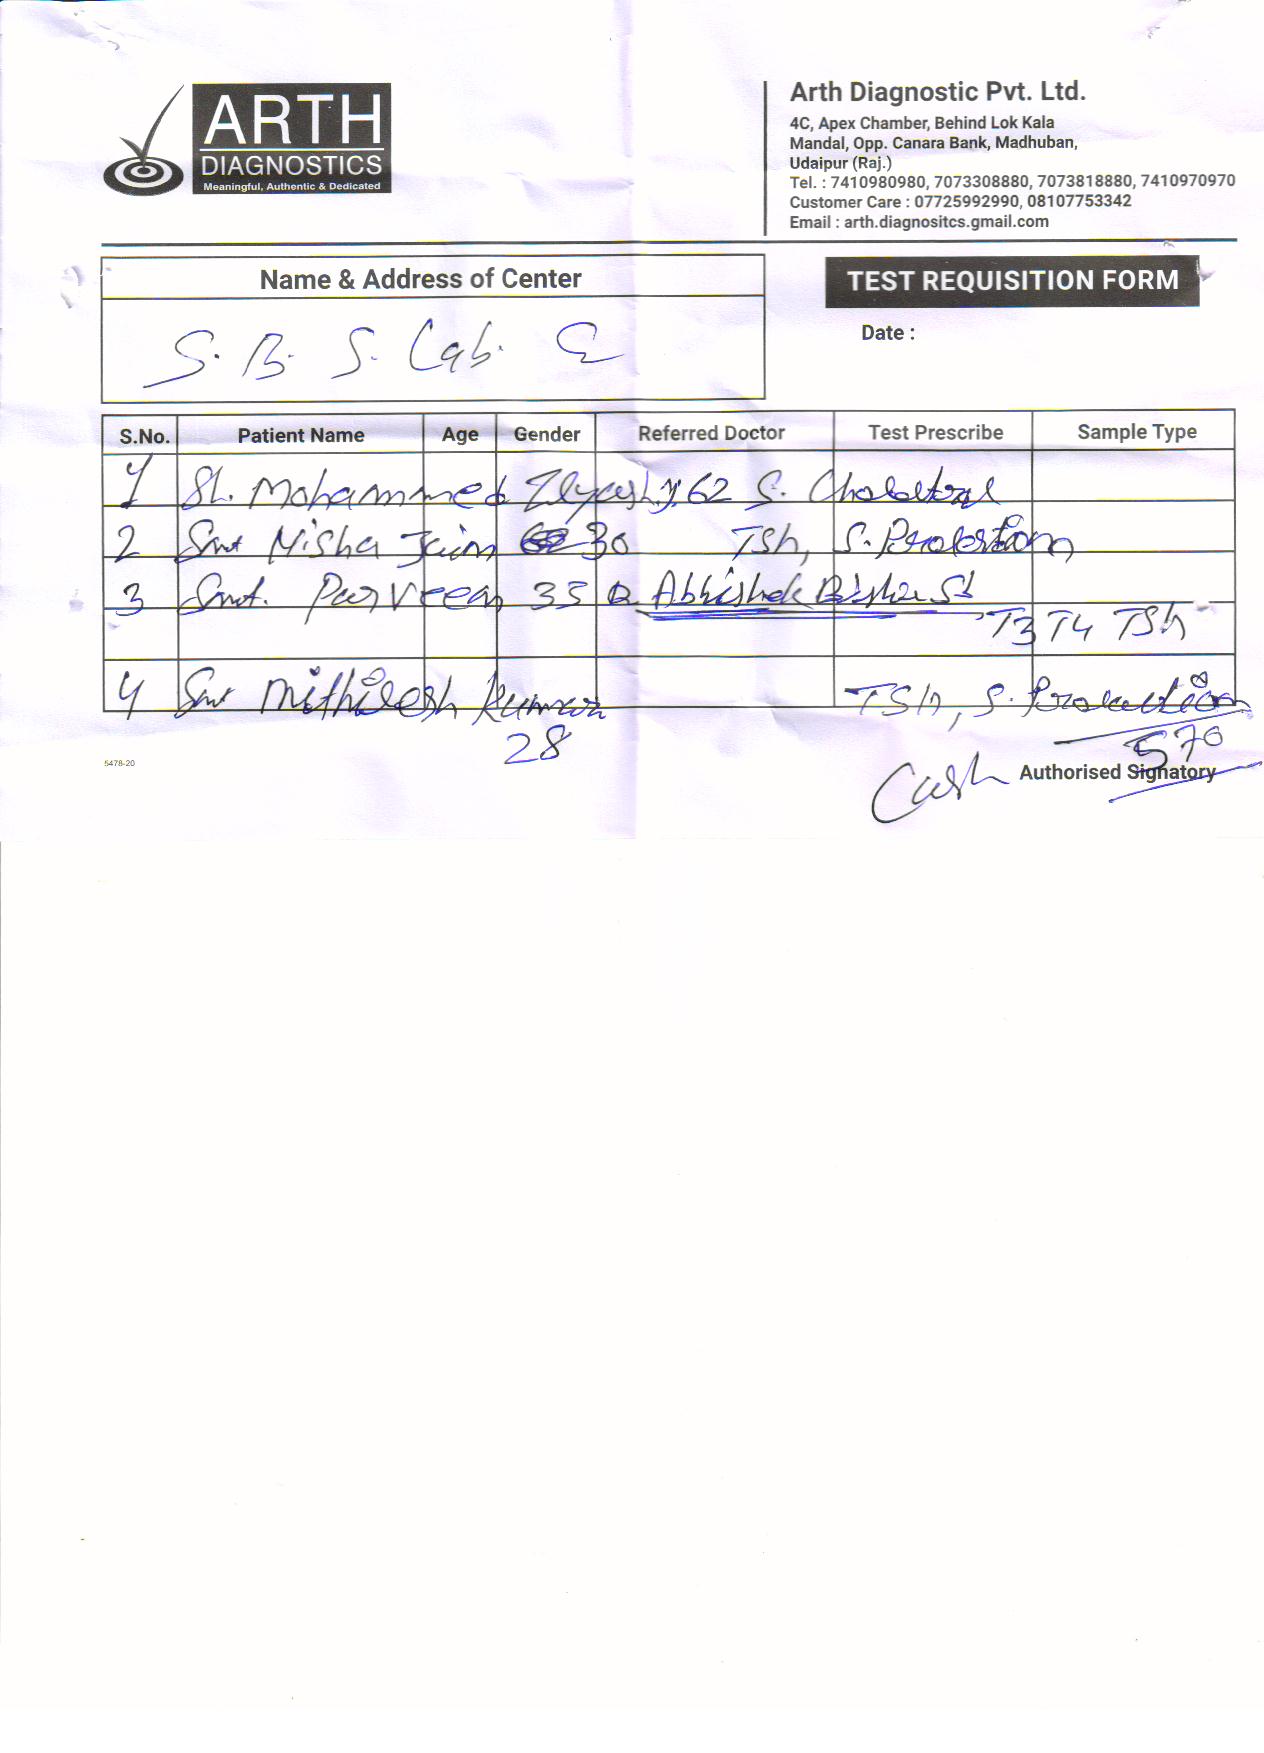 ARTH
DIAGNOSTICS
Meaningful, Authentic & Dedicated
Arth Diagnostic Pvt. Ltd.
4C, Apex Chamber, Behind Lok Kala
Mandal, Opp. Canara Bank, Madhuban,
Udaipur (Raj.)
Tel. : 7410980980, 7073308880, 7073818880, 7410970970
Customer Care : 07725992990, 08107753342
Email : arth.diagnositcs.gmail.com
Name & Address of Center
TEST REQUISITION FORM
Date :
S. B. S. Lab.
S.No. Patient Name Age Gender Referred Doctor Test Prescribe Sample Type
1 Sh. Mohammed 62 S.
2 Smt Nisha Jain 30 TSh, S.
3 Smt. Parveen 35 Abhishek
T3 T4 TSh
4 Smt Mithilesh Kumar TSh, S. Prolactin
28
570
5478-20
Cash Authorised Signatory